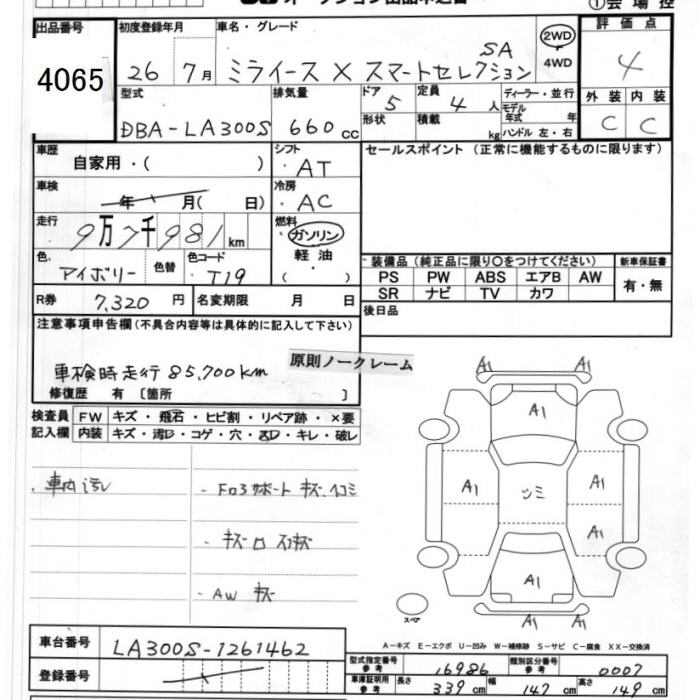 ①会場控
出品番号 初度登録年月 車名・グレード 評価点
4065 26 7月 ミライース X スマートセレクション SA 2WD 4WD 4
型式 排気量 ドア 5 定員 4 人 ディーラー・並行 外装 内装
DBA-LA300S 660cc 形状 積載 kg モデル年式 年 ハンドル 左・右 C C
車歴 自家用・( ) シフト AT セールスポイント (正常に機能するものに限ります)
車検 年 月( 日) 冷房 AC
走行 9万7千981km 燃料 ガソリン 軽油 ・( )
色 アイボリー 色替 色コード T19 装備品 (純正品に限り○をつけてください) 新車保証書
PS PW ABS エアB AW 有・無
SR ナビ TV カワ
R券 7,320 円 名変期限 月 日 後日品
注意事項申告欄(不具合内容等は具体的に記入して下さい)
原則ノークレーム
車検時走行85,700km
修復歴 有 〔箇所 〕
検査員 FW キズ・飛石・ヒビ割・リペア跡・×要
記入欄 内装 キズ・汚レ・コゲ・穴・・キレ・破レ
・車内汚レ ・Fロアサポート キズ・ヘコミ
・AW キズ
A1 A1
A1
A1 ツミ A1
A1
A1
A1 A1
スペア
車台番号 LA300S-1261462
A-キズ E-エクボ U-凹み W-補修跡 S-サビ C-腐食 XX-交換済
登録番号 型式指定番号 参考 16986 類別区分番号 参考 0007
車庫証明用 参考 長さ 339cm 幅 147cm 高さ 149cm